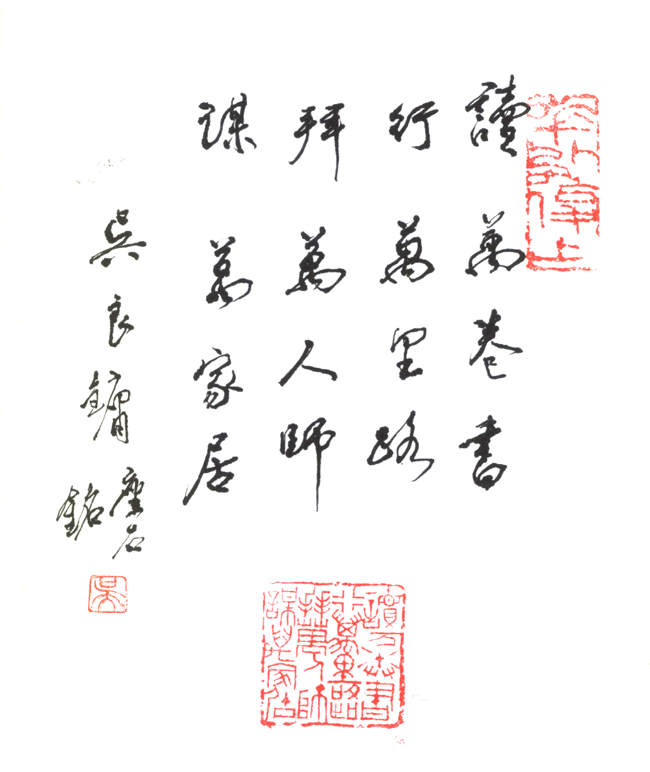 讀萬卷書
行萬里路
拜萬人師
謀萬家居
吳良鏞
座右
銘
吳
讀万卷書
行萬里路
拜萬人師
謀家居